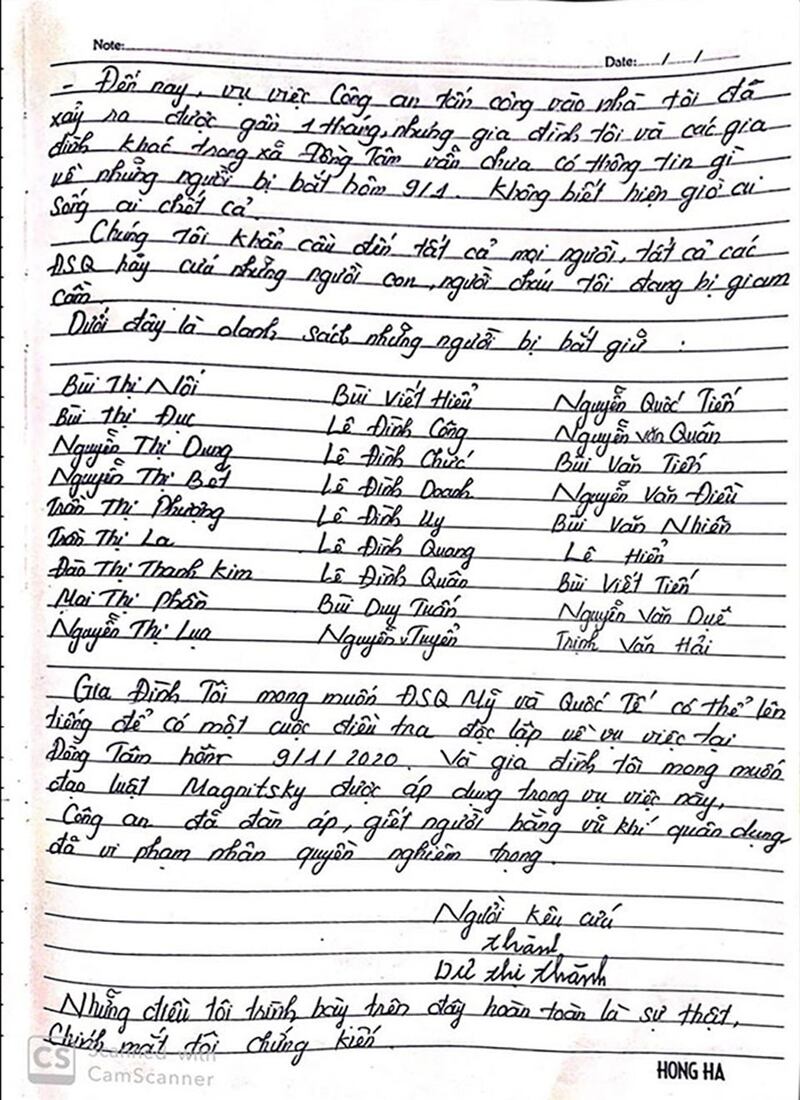 Note: Date: / /
- Đến nay, vụ việc Công an tấn công vào nhà tôi đã
xảy ra được gần 1 tháng, nhưng gia đình tôi và các gia
đình khác trong xã Đồng Tâm vẫn chưa có thông tin gì
về những người bị bắt hôm 9/1. Không biết hiện giờ ai
sống ai chết cả.
Chúng tôi khẩn cầu đến tất cả mọi người, tất cả các
ĐSQ hãy cứu những người con, người cháu tôi đang bị giam
cầm.
Dưới đây là danh sách những người bị bắt giữ :
Bùi Thị Nối Bùi Viết Hiểu Nguyễn Quốc Tiến
Bùi Thị Đục Lê Đình Công Nguyễn Văn Quân
Nguyễn Thị Dung Lê Đình Chức Bùi Văn Tiến
Nguyễn Thị Bét Lê Đình Doanh Nguyễn Văn Điều
Trần Thị Phượng Lê Đình Uy Bùi Văn Nhiên
Trần Thị La Lê Đình Quang Lê Hiển
Đào Thị Thanh Kim Lê Đình Quân Bùi Viết Tiến
Mai Thị Phần Bùi Duy Tuấn Nguyễn Văn Duệ
Nguyễn Thị Lụa Nguyễn V Tuyển Trịnh Văn Hải
Gia Đình Tôi mong muốn ĐSQ Mỹ và Quốc Tế có thể lên
tiếng để có một cuộc điều tra độc lập về vụ việc tại
Đồng Tâm hôm 9/1/2020. Và gia đình tôi mong muốn
đạo luật Magnitsky được áp dụng trong vụ việc này,
Công an đã đàn áp, giết người bằng vũ khí quân dụng
đã vi phạm nhân quyền nghiêm trọng.
Người kêu cứu
Thành
Dư Thị Thành
Những điều tôi trình bày trên đây hoàn toàn là sự thật,
Chính mắt tôi chứng kiến.
CS Scanned with
CamScanner
HONG HA